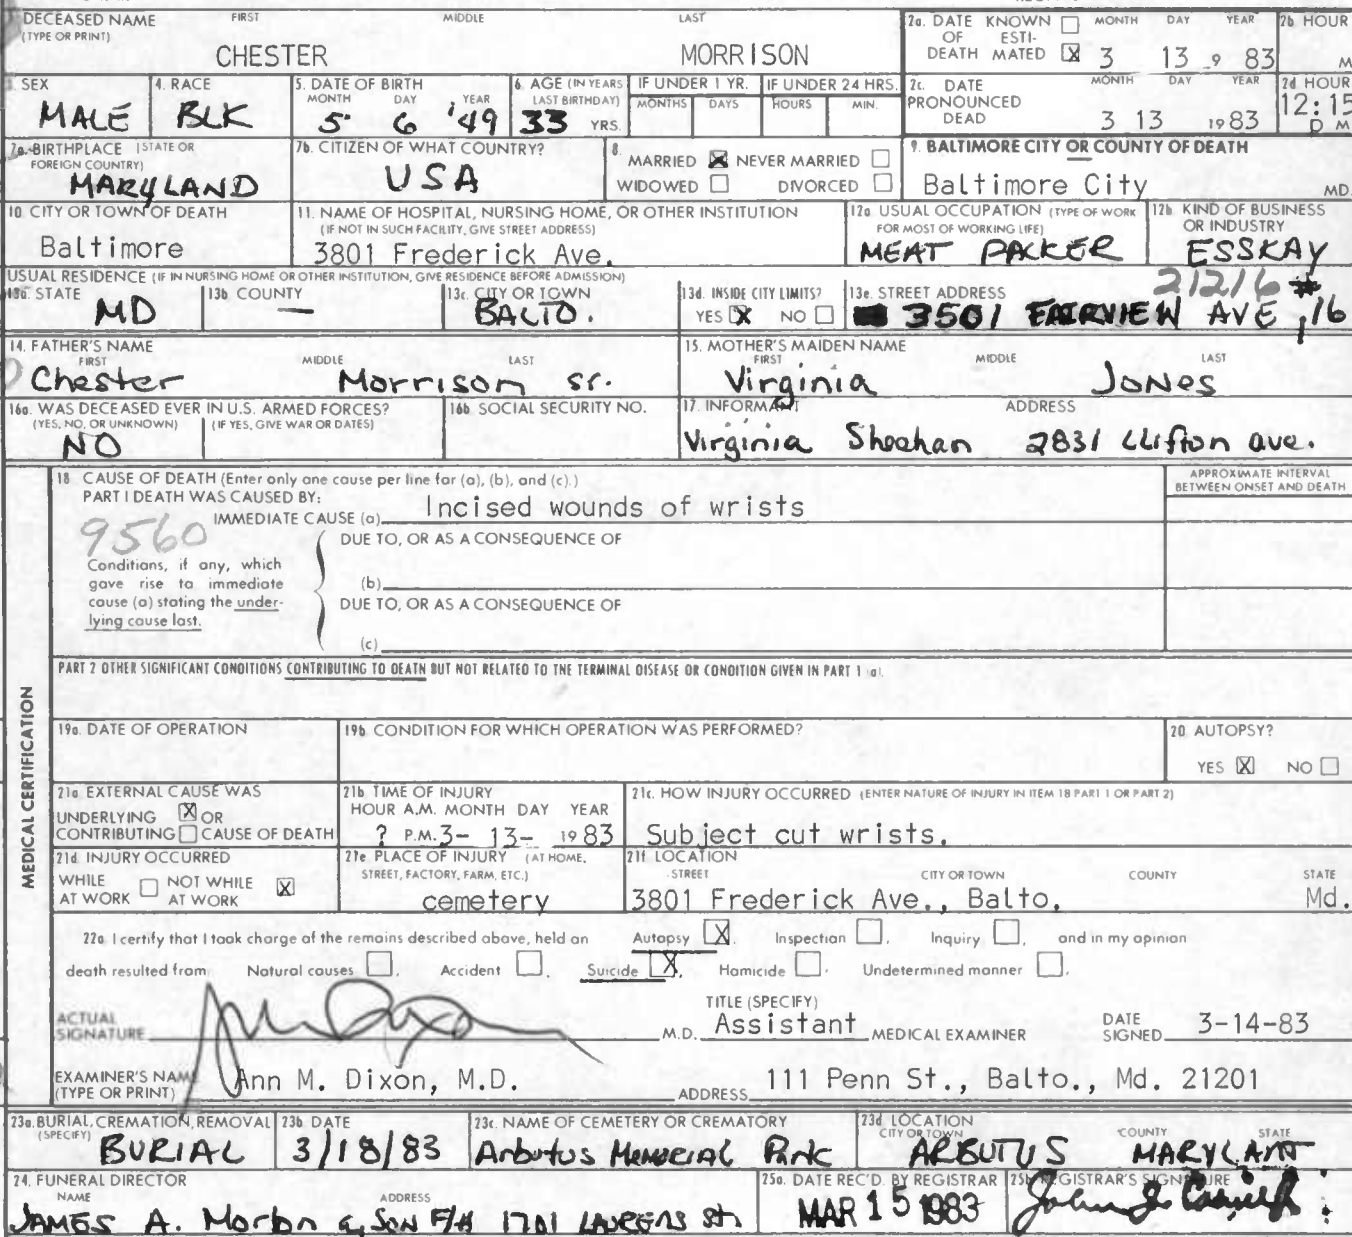 DECEASED NAME FIRST MIDDLE LAST
(TYPE OR PRINT)
CHESTER MORRISON
2a. DATE KNOWN OF ESTI- DEATH MATED X MONTH DAY YEAR
3 13 19 83
2b HOUR
M
3. SEX
MALE
4. RACE
BLK
5. DATE OF BIRTH
MONTH DAY YEAR
5 6 '49
6. AGE (IN YEARS LAST BIRTHDAY)
33 YRS.
IF UNDER 1 YR.
MONTHS DAYS
IF UNDER 24 HRS.
HOURS MIN.
2c. DATE PRONOUNCED DEAD MONTH DAY YEAR
3 13 1983
2d HOUR
12:15
P M
7a. BIRTHPLACE (STATE OR FOREIGN COUNTRY)
MARYLAND
7b. CITIZEN OF WHAT COUNTRY?
USA
8. MARRIED X NEVER MARRIED
WIDOWED DIVORCED
9. BALTIMORE CITY OR COUNTY OF DEATH
Baltimore City MD.
10. CITY OR TOWN OF DEATH
Baltimore
11. NAME OF HOSPITAL, NURSING HOME, OR OTHER INSTITUTION
(IF NOT IN SUCH FACILITY, GIVE STREET ADDRESS)
3801 Frederick Ave.
12a USUAL OCCUPATION (TYPE OF WORK FOR MOST OF WORKING LIFE)
MEAT PACKER
12b. KIND OF BUSINESS OR INDUSTRY
ESSKAY
USUAL RESIDENCE (IF IN NURSING HOME OR OTHER INSTITUTION, GIVE RESIDENCE BEFORE ADMISSION)
13a. STATE
MD
13b. COUNTY
—
13c. CITY OR TOWN
BALTO.
13d. INSIDE CITY LIMITS?
YES X NO
13e. STREET ADDRESS 21216 #
3501 FAIRVIEW AVE, 16
14. FATHER'S NAME
FIRST MIDDLE LAST
Chester Morrison sr.
15. MOTHER'S MAIDEN NAME
FIRST MIDDLE LAST
Virginia JONES
16a. WAS DECEASED EVER IN U.S. ARMED FORCES?
(YES, NO, OR UNKNOWN) (IF YES, GIVE WAR OR DATES)
NO
16b. SOCIAL SECURITY NO.
17. INFORMANT ADDRESS
Virginia Sheehan 2831 Clifton ave.
MEDICAL CERTIFICATION
18 CAUSE OF DEATH (Enter only one cause per line for (a), (b), and (c).)
PART I DEATH WAS CAUSED BY:
IMMEDIATE CAUSE (a) Incised wounds of wrists
APPROXIMATE INTERVAL BETWEEN ONSET AND DEATH
9560
DUE TO, OR AS A CONSEQUENCE OF
Conditions, if any, which gave rise to immediate cause (a) stating the underlying cause last.
(b)
DUE TO, OR AS A CONSEQUENCE OF
(c)
PART 2 OTHER SIGNIFICANT CONDITIONS CONTRIBUTING TO DEATH BUT NOT RELATED TO THE TERMINAL DISEASE OR CONDITION GIVEN IN PART 1 (a).
19a. DATE OF OPERATION
19b. CONDITION FOR WHICH OPERATION WAS PERFORMED?
20. AUTOPSY?
YES X NO
21a EXTERNAL CAUSE WAS
UNDERLYING X OR
CONTRIBUTING CAUSE OF DEATH
21b TIME OF INJURY
HOUR A.M. MONTH DAY YEAR
? P.M. 3- 13- 1983
21c. HOW INJURY OCCURRED (ENTER NATURE OF INJURY IN ITEM 18 PART 1 OR PART 2)
Subject cut wrists.
21d. INJURY OCCURRED
WHILE AT WORK NOT WHILE AT WORK X
21e PLACE OF INJURY (AT HOME, STREET, FACTORY, FARM, ETC.)
cemetery
21f. LOCATION
STREET CITY OR TOWN COUNTY STATE
3801 Frederick Ave., Balto. Md.
22a. I certify that I took charge of the remains described above, held an Autopsy X, Inspection, Inquiry, and in my opinion
death resulted from Natural causes, Accident, Suicide X, Homicide, Undetermined manner.
ACTUAL SIGNATURE M.D. TITLE (SPECIFY) Assistant MEDICAL EXAMINER DATE SIGNED 3-14-83
EXAMINER'S NAME (TYPE OR PRINT) Ann M. Dixon, M.D. ADDRESS 111 Penn St., Balto., Md. 21201
23a. BURIAL, CREMATION, REMOVAL (SPECIFY)
BURIAL
23b. DATE
3/18/83
23c. NAME OF CEMETERY OR CREMATORY
Arbutus Memorial Park
23d. LOCATION
CITY OR TOWN COUNTY STATE
ARBUTUS MARYLAND
24. FUNERAL DIRECTOR
NAME ADDRESS
JAMES A. Morton & SON F/H 1701 LAURENS St.
25a. DATE REC'D. BY REGISTRAR
MAR 15 1983
25b. REGISTRAR'S SIGNATURE